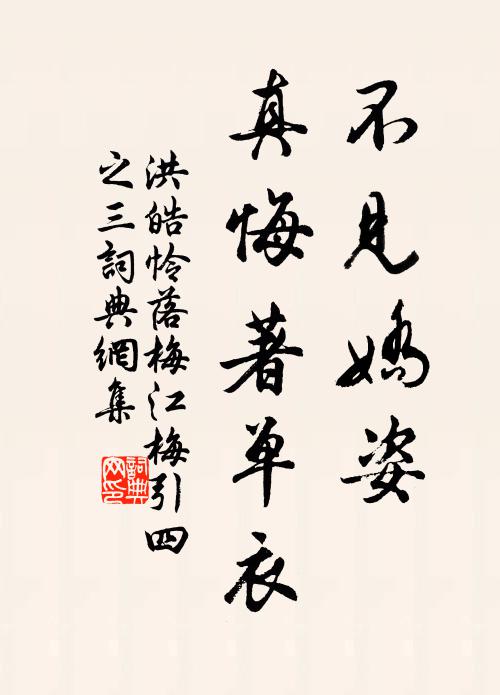 不見嬌姿
真悔著单衣
洪皓怜落梅江梅引四
之三詞典網集
詞典
网印